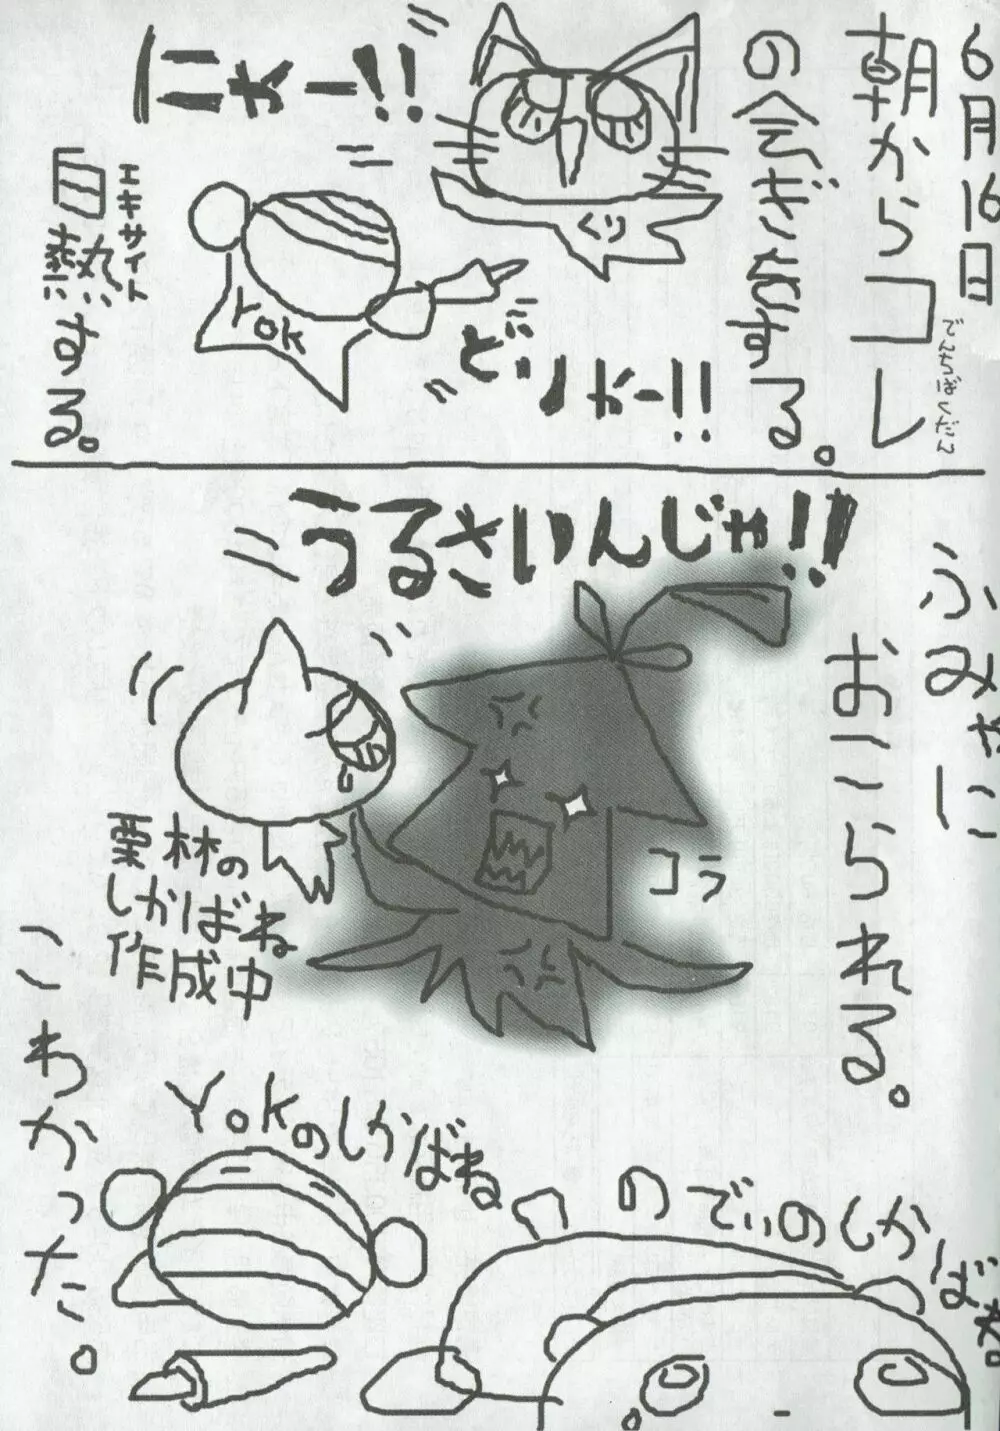 6月16日
朝からコレ
でんちばくだん
の会ぎをする。
くり
Yok
どりゃー!!
エキサイト
白熱する。
ふみやに
おこられる。
うるさいんじゃ!!
コラ
栗林の
しかばね
作成中
Yokのしかばね
のでぃのしかばね
こわかった。